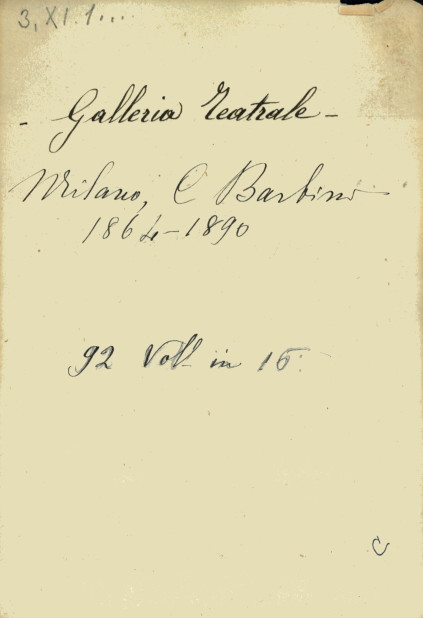 3, XI. 1...
- Galleria Teatrale -
Milano, C Barbini
1864-1890
92 Voll in 16.
C